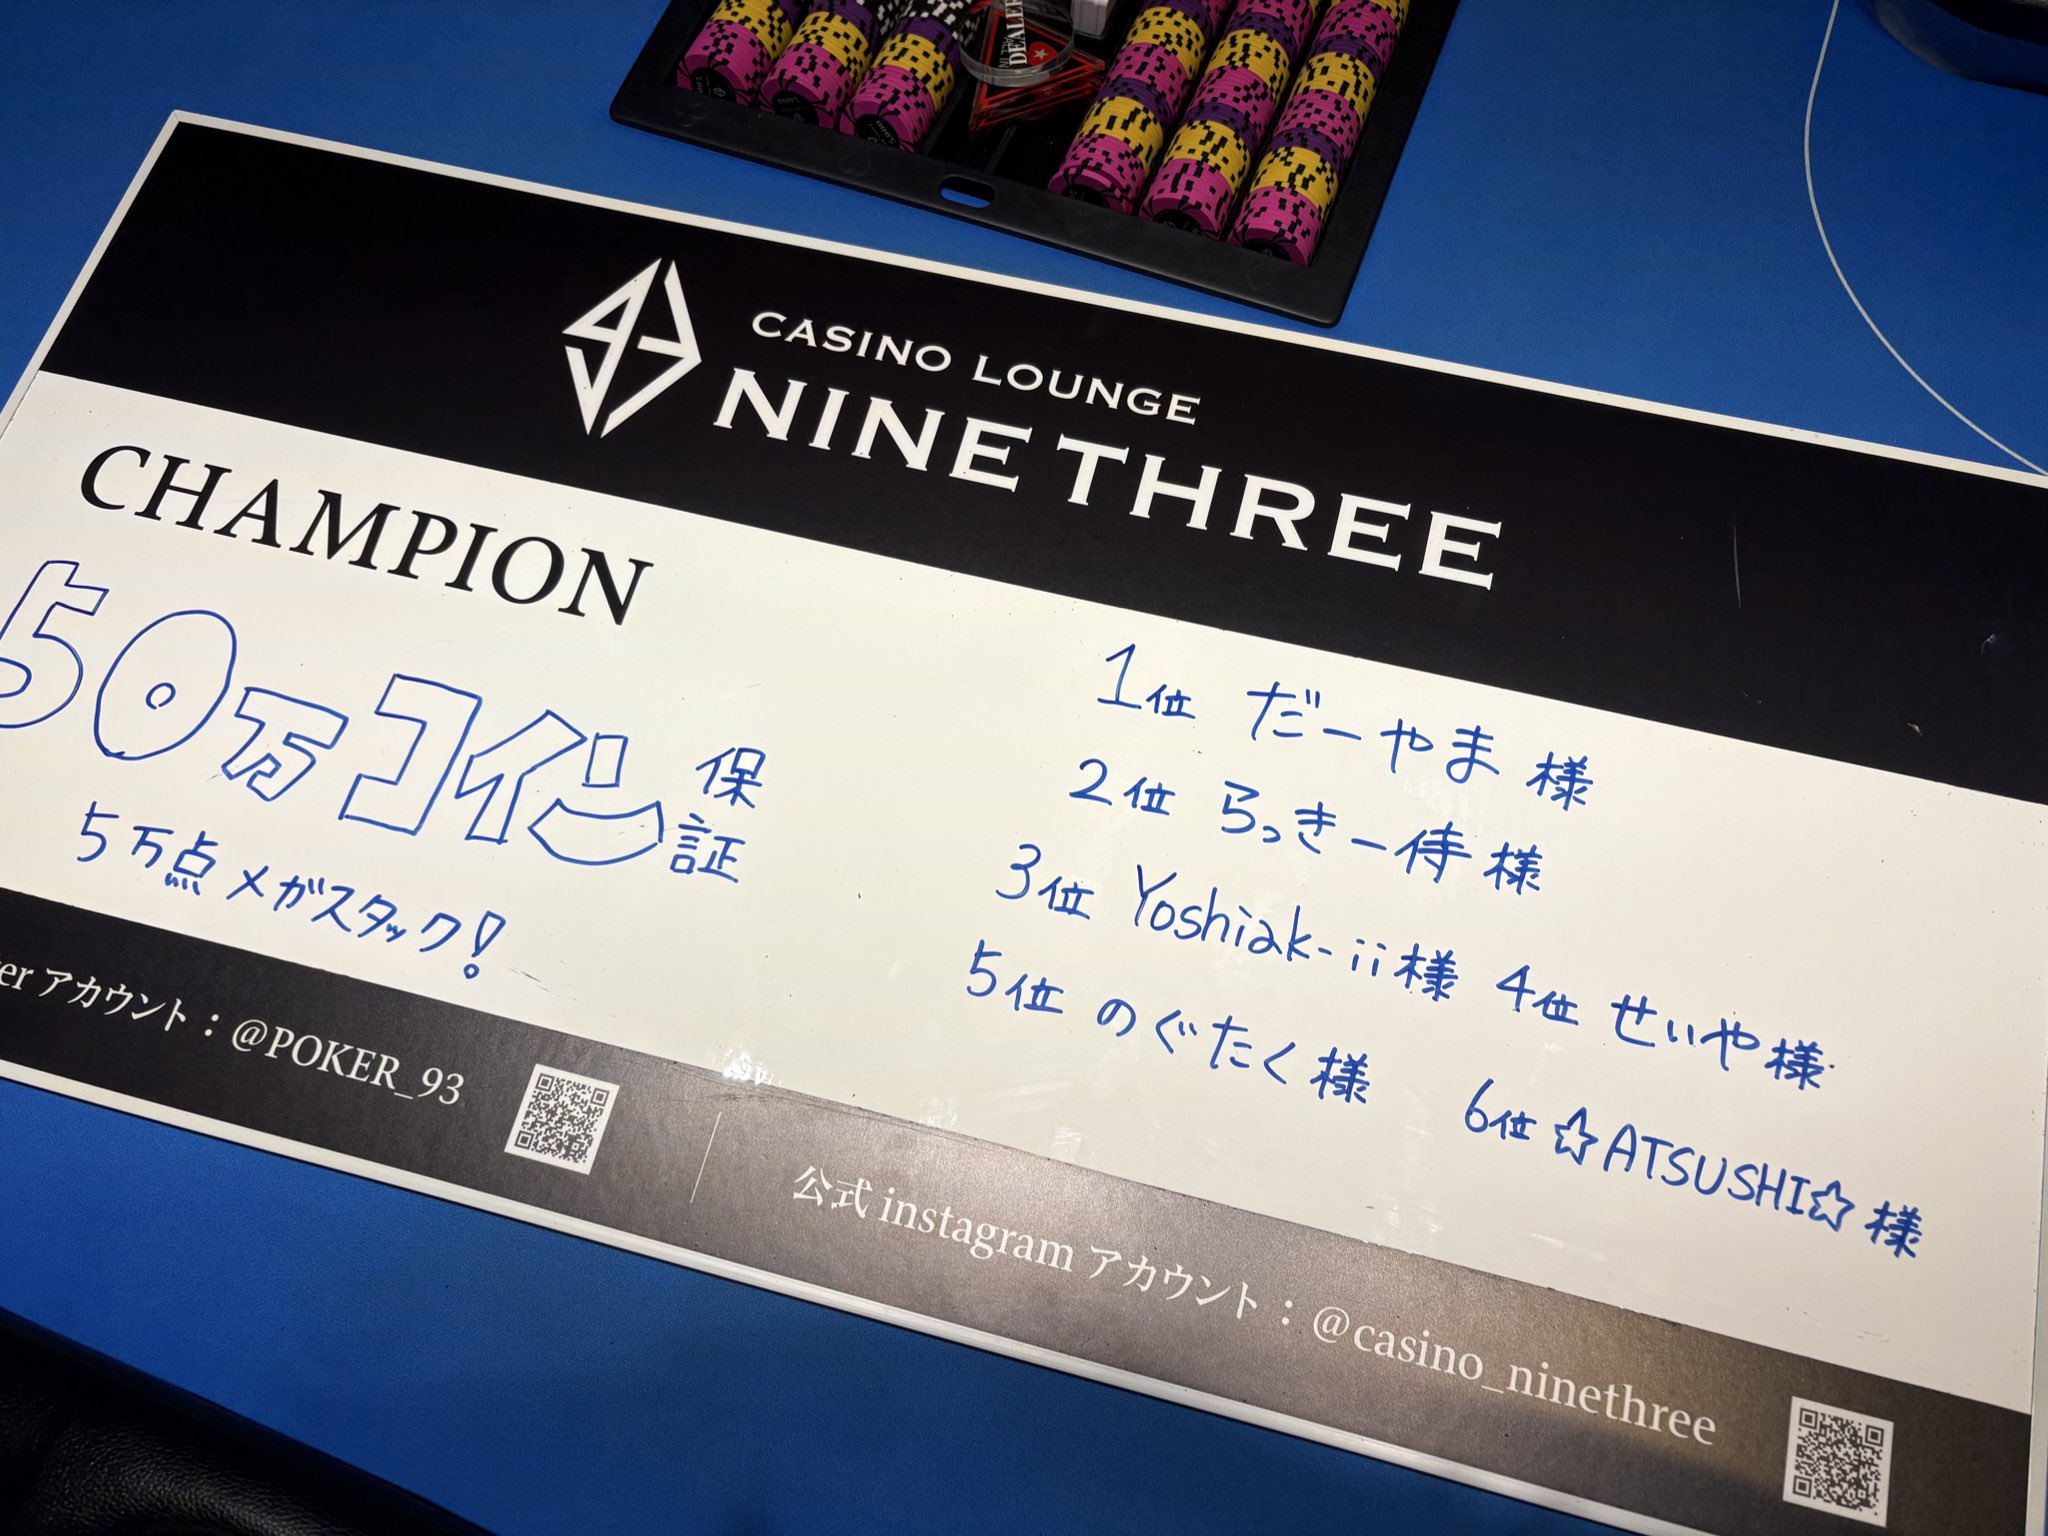 DEALER
CASINO LOUNGE
NINE THREE
CHAMPION
50万コイン保証
5万点メガスタック!
1位 だーやま 様
2位 らっきー侍 様
3位 Yoshiak-ii様 4位 せいや様
5位 のぐたく様 6位 ☆ATSUSHI☆ 様
er アカウント:@POKER_93
公式 instagram アカウント:@casino_ninethree